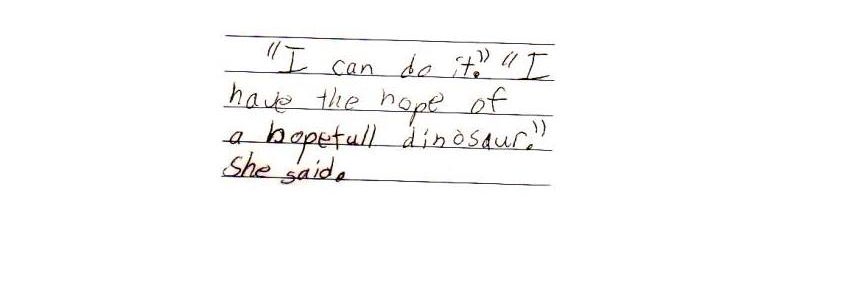 "I can do it." "I
have the hope of
a hopefull dinosaur."
She said.